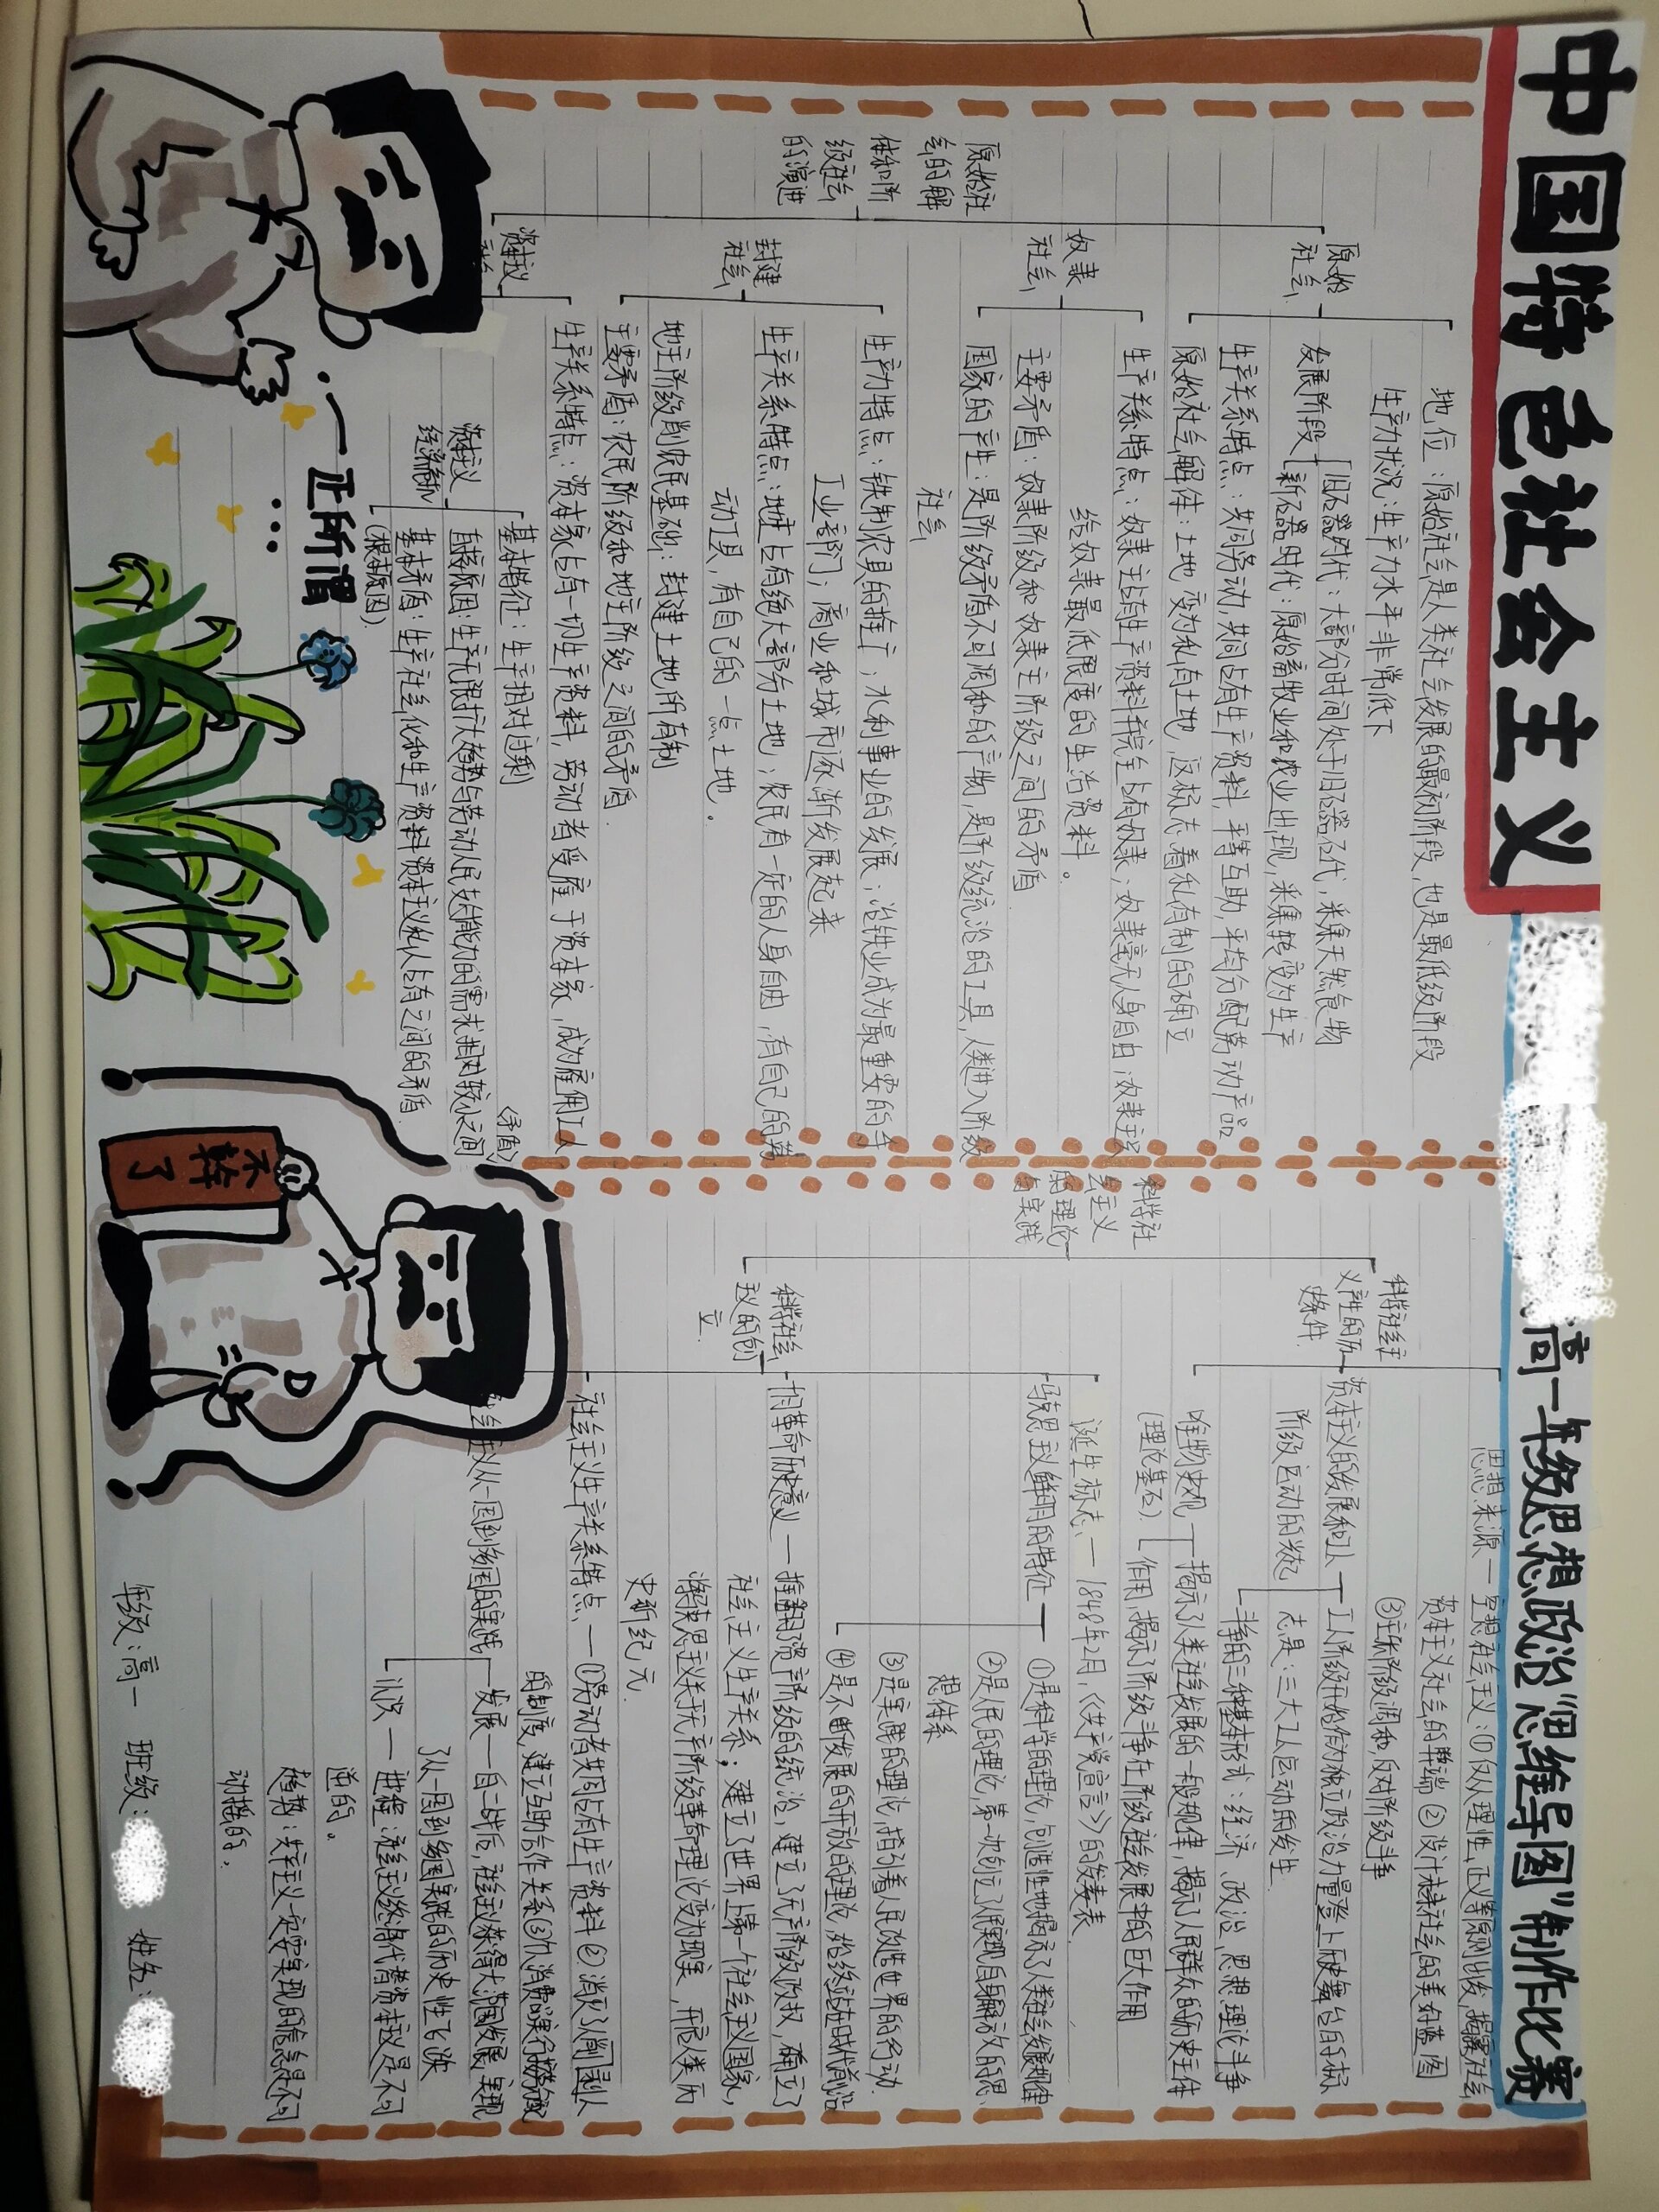 中国特色社会主义
高一年级思想政治“思维导图”制作比赛
原始社
会的解
体和阶
级社会
的演进
原始
社会
地位：原始社会是人类社会发展的最初阶段，也是最低级阶段
生产力状况：生产力水平非常低下
发展阶段
旧石器时代：大部分时间处于旧石器时代，采集天然食物
新石器时代：原始畜牧业和农业出现，采集转变为生产
生产关系特点：共同劳动，共同占有生产资料，平等互助，平均分配劳动产品
原始社会解体：土地变为私有土地，这标志着私有制的确立
奴隶
社会
生产关系特点：奴隶主占有生产资料并完全占有奴隶；奴隶毫无人身自由；奴隶主只
给奴隶最低限度的生活资料。
主要矛盾：奴隶阶级和奴隶主阶级之间的矛盾
国家的产生：是阶级矛盾不可调和的产物，是阶级统治的工具，人类进入阶级
社会
封建
社会
生产力特点：铁制农具的推广；水利事业的发展；冶铁业成为最重要的手
工业部门；商业和城市逐渐发展起来
生产关系特点：地主占有绝大部分土地；农民有一定的人身自由，有自己的劳
动工具，有自己的一点土地。
地主阶级剥削农民基础：封建土地所有制
主要矛盾：农民阶级和地主阶级之间的矛盾.
资本主义
社会
生产关系特点：资本家占有一切生产资料，劳动者受雇于资本家，成为雇佣工人
资本主义
经济危机
基本特征：生产相对过剩
直接原因：生产无限扩大趋势与劳动人民支付能力的需求相对较小之间
(矛盾)
基本矛盾：生产社会化和生产资料资本主义私人占有之间的矛盾
(根本原因).
正所谓
...
科学社
会主义
的理论
与实践
科学社会主
义产生的历
史条件
思想来源—空想社会主义：①仅从理性、正义等原则出发，揭露社会
资本主义社会的弊端 ②设计未来社会的美好蓝图
③主张阶级调和，反对阶级斗争
资本主义的发展和工人
阶级运动的兴起
工人阶级开始作为独立政治力量登上历史舞台的标
志是：三大工人运动的发生
斗争的三种基本形式：经济、政治、思想理论斗争
唯物史观
(理论基石).
揭示了人类社会发展的一般规律，揭示了人民群众的历史主体
作用，揭示了阶级斗争在阶级社会发展中的巨大作用
科学社会
主义的创
立
诞生标志—1848年2月，《共产党宣言》的发表
马克思主义鲜明的特征—①是科学的理论，创造性地揭示了人类社会发展规律
②是人民的理论，第一次创立了人民实现自身解放的思
想体系
③是实践的理论，指引着人民改造世界的行动
④是不断发展的开放的理论，始终站在时代前沿
十月革命历史意义—推翻了资产阶级的统治，建立了无产阶级政权，确立了
社会主义生产关系；建立了世界上第一个社会主义国家，
将马克思主义关于无产阶级革命理论变为现实，开启人类历
史新纪元.
社会主义生产关系特点—①劳动者共同占有生产资料②消灭了剥削人
的制度，建立互助合作关系③个人消费品实行按劳分配
社会主义从一国到多国的实践
发展—自二战后，社会主义获得大范围发展，实现
了从一国到多国实践的历史性飞跃
状况—进程：社会主义终将代替资本主义是不可
逆的。
趋势：共产主义一定要实现的信念是不可
动摇的。
不幹
了
年级：高一 班级： 姓名：